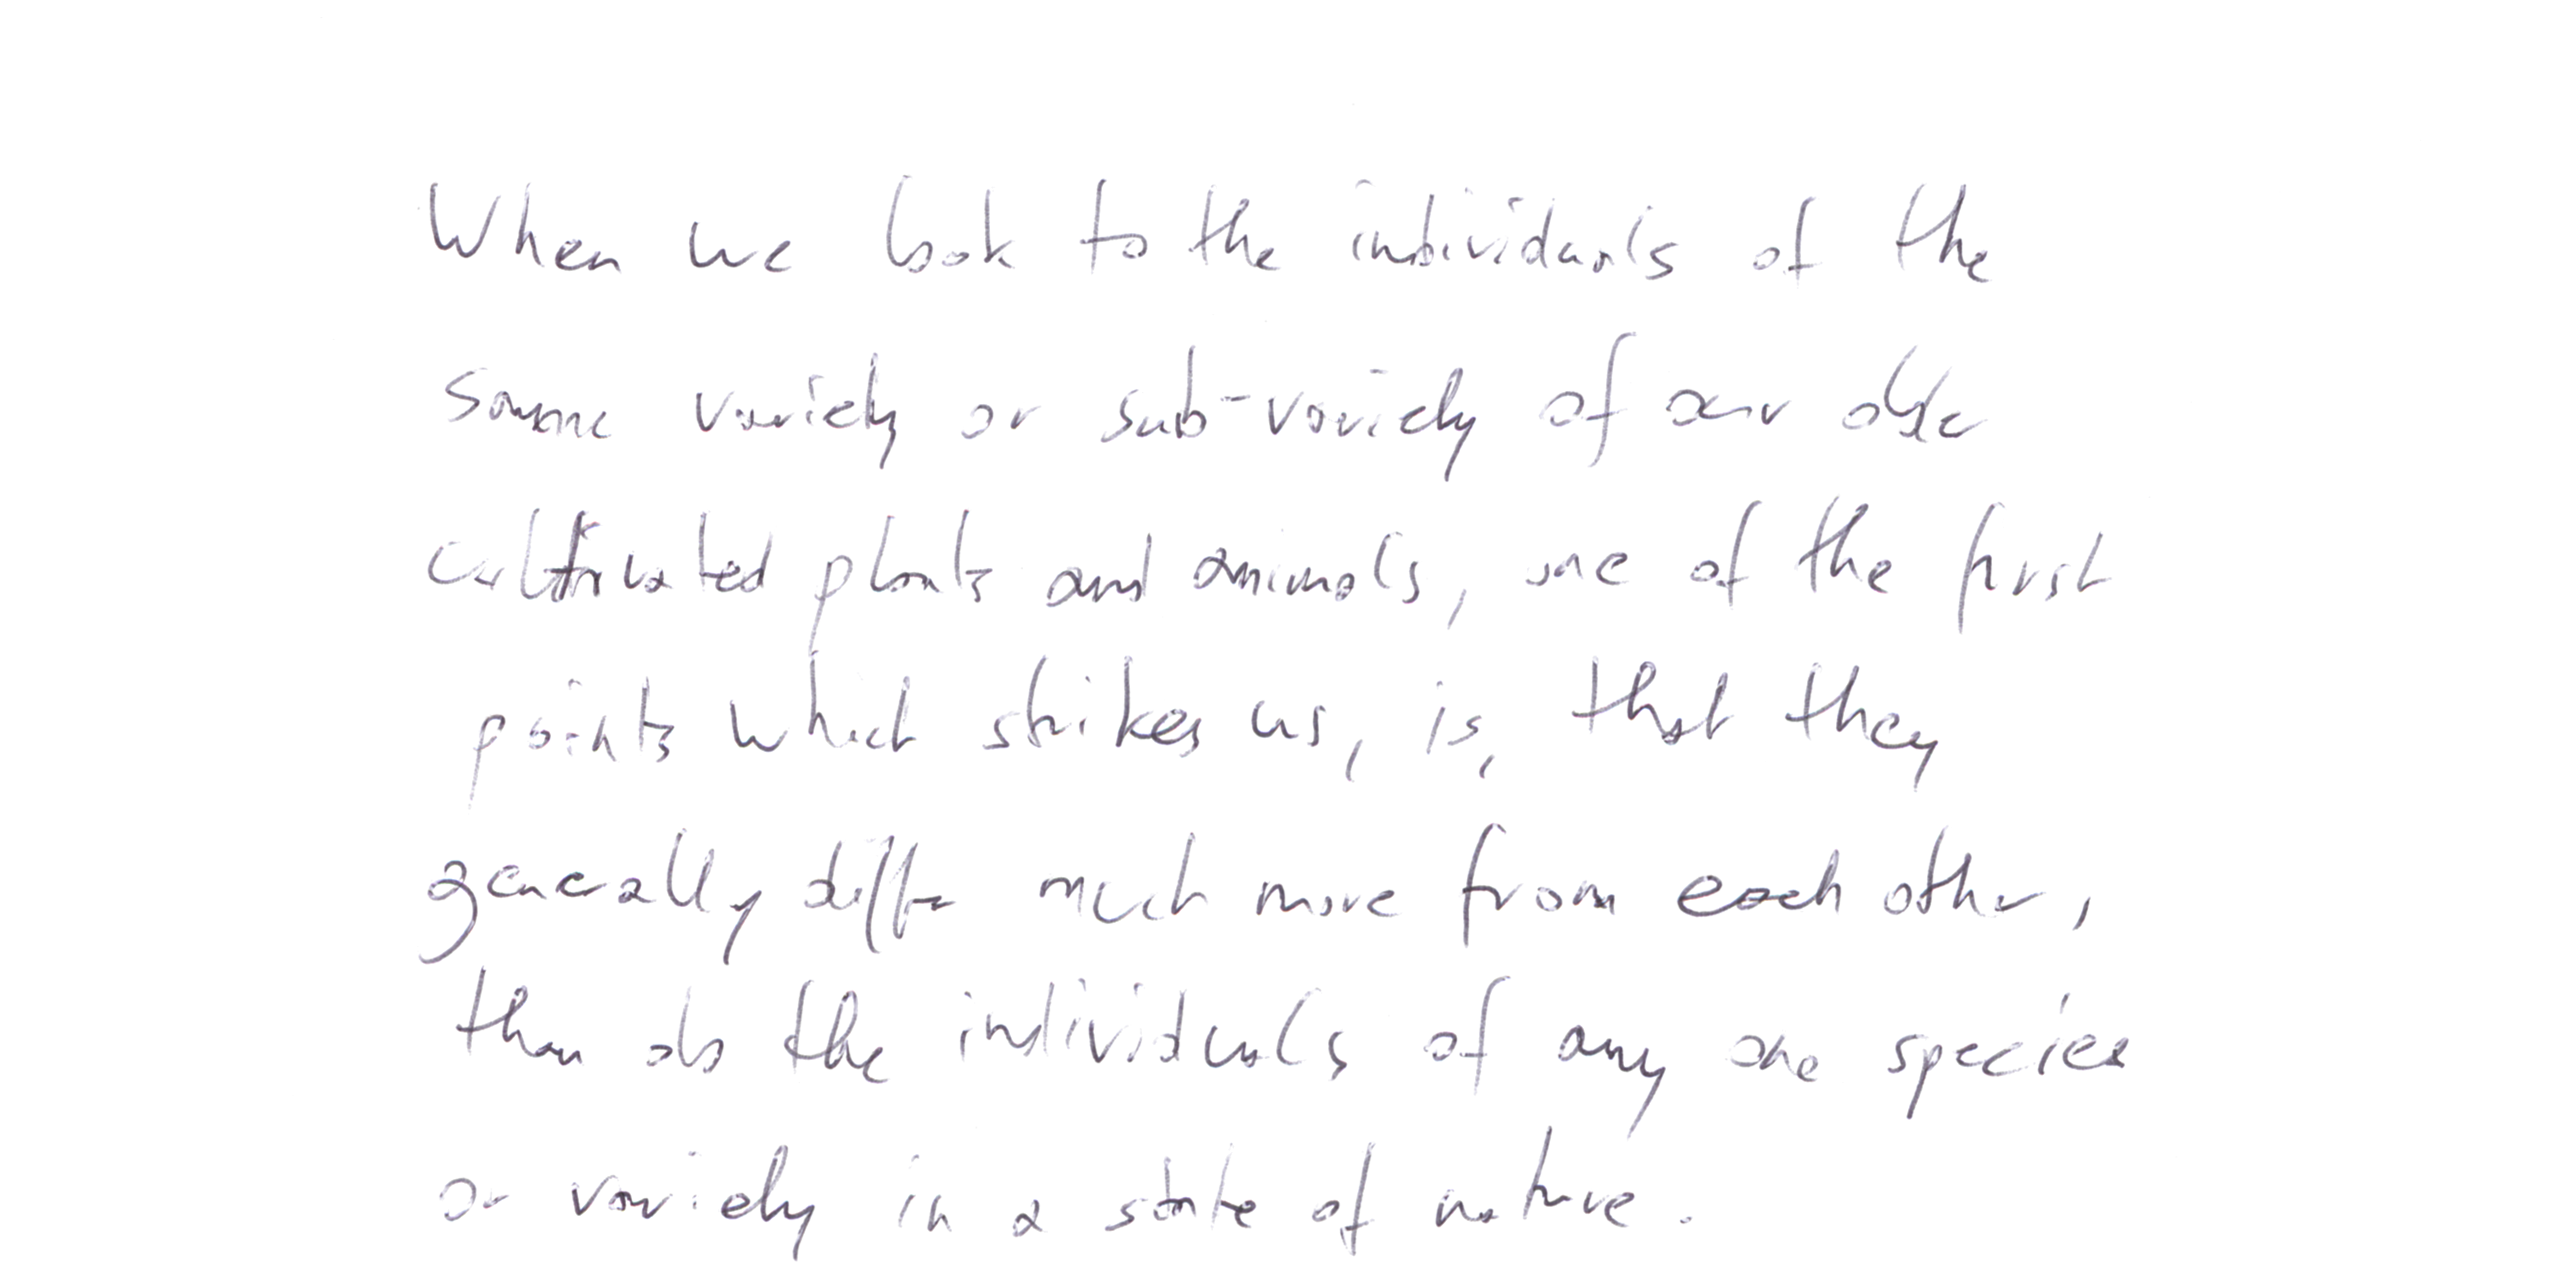 When we look to the individuals of the
same variety or sub-variety of our older
cultivated plants and animals, one of the first
points which strikes us, is, that they
generally differ much more from each other,
than do the individuals of any one species
or variety in a state of nature.